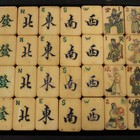 發 N 北 E 東 S 南 W 西
發 N 北 E 東 S 南 W 西
發 N 北 E 東 S 南 W 西
發 N 北 E 東 S 南 W 西